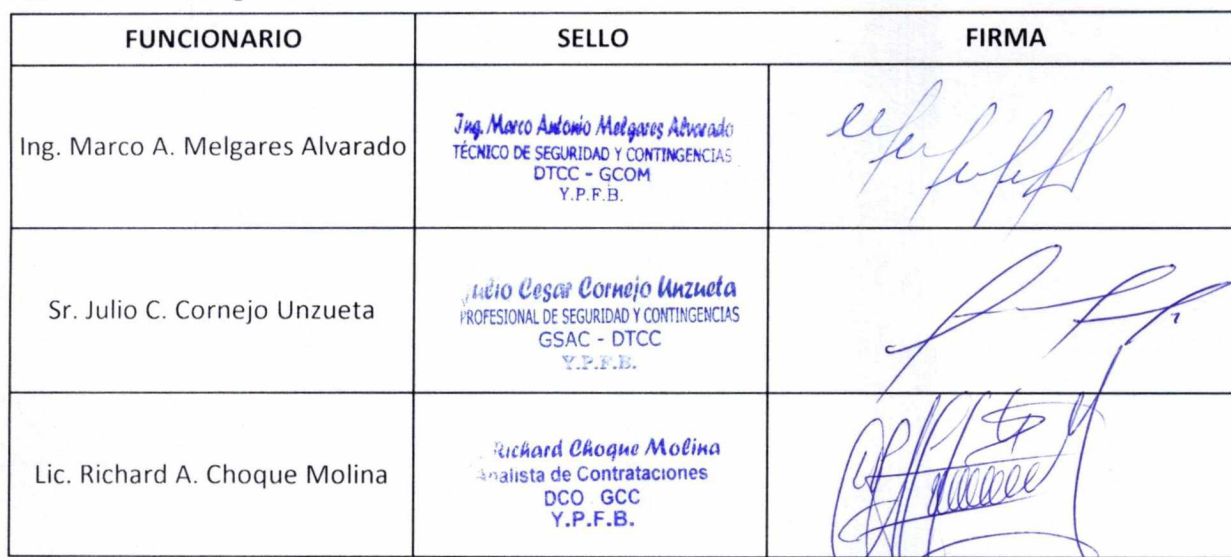 FUNCIONARIO SELLO FIRMA
Ing. Marco A. Melgares Alvarado
Ing. Marco Antonio Melgares Alvarado
TÉCNICO DE SEGURIDAD Y CONTINGENCIAS
DTCC - GCOM
Y.P.F.B.
Sr. Julio C. Cornejo Unzueta
Julio Cesar Cornejo Unzueta
PROFESIONAL DE SEGURIDAD Y CONTINGENCIAS
GSAC - DTCC
Y.P.F.B.
Lic. Richard A. Choque Molina
Richard Choque Molina
Analista de Contrataciones
DCO GCC
Y.P.F.B.